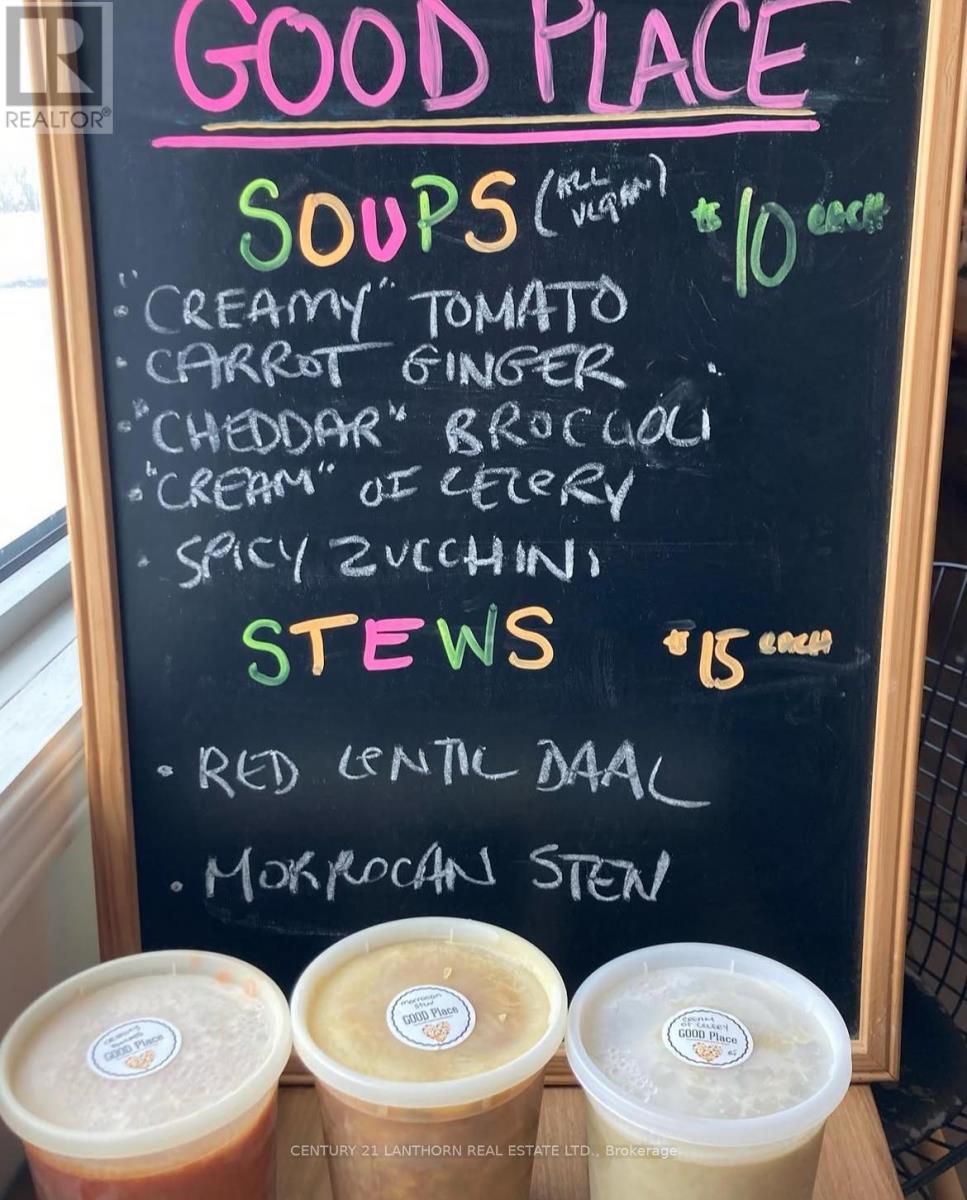 GOOD PLACE
REALTOR®
SOUPS (ALL VEGAN) $10 EACH
• "CREAMY" TOMATO
• CARROT GINGER
• "CHEDDAR" BROCCOLI
• "CREAM" OF CELERY
• SPICY ZUCCHINI
STEWS $15 EACH
• RED LENTIL DAAL
• MORROCAN STEW
GOOD Place
morrocan
stew
GOOD Place
CREAM
OF CELERY
GOOD Place
CENTURY 21 LANTHORN REAL ESTATE LTD., Brokerage